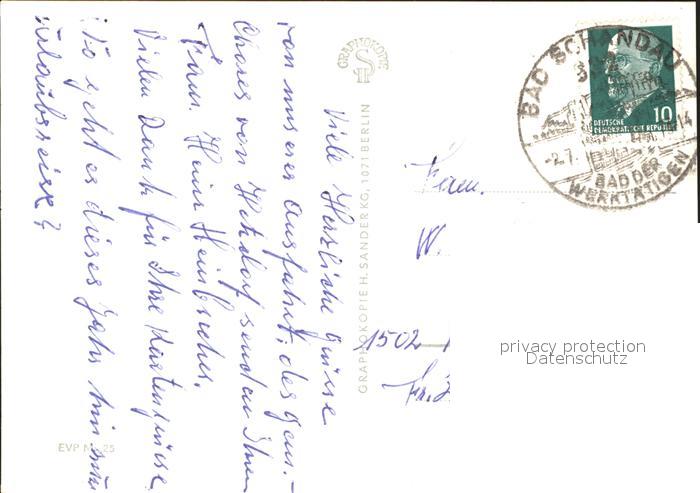 Viele Herzliche Grüße
von unserer Ausfahrt, des Gem.-
Chores von Hetzdorf senden Ihnen
Fam. Heinr
Vielen Dank für Ihre Kartengrüße.
Wo geht es dieses Jahr hin zur
Urlaubsreise?
GRAPHOKOPIE
GRAPHOKOPIE H. SANDER KG, 1071 BERLIN
EVP
25
Fam.
W.
1502
BAD SCHANDAU
-2.7.
14
BAD DER
WERKTÄTIGEN
10
DEUTSCHE
DEMOKRATISCHE REPUBLIK
privacy protection
Datenschutz